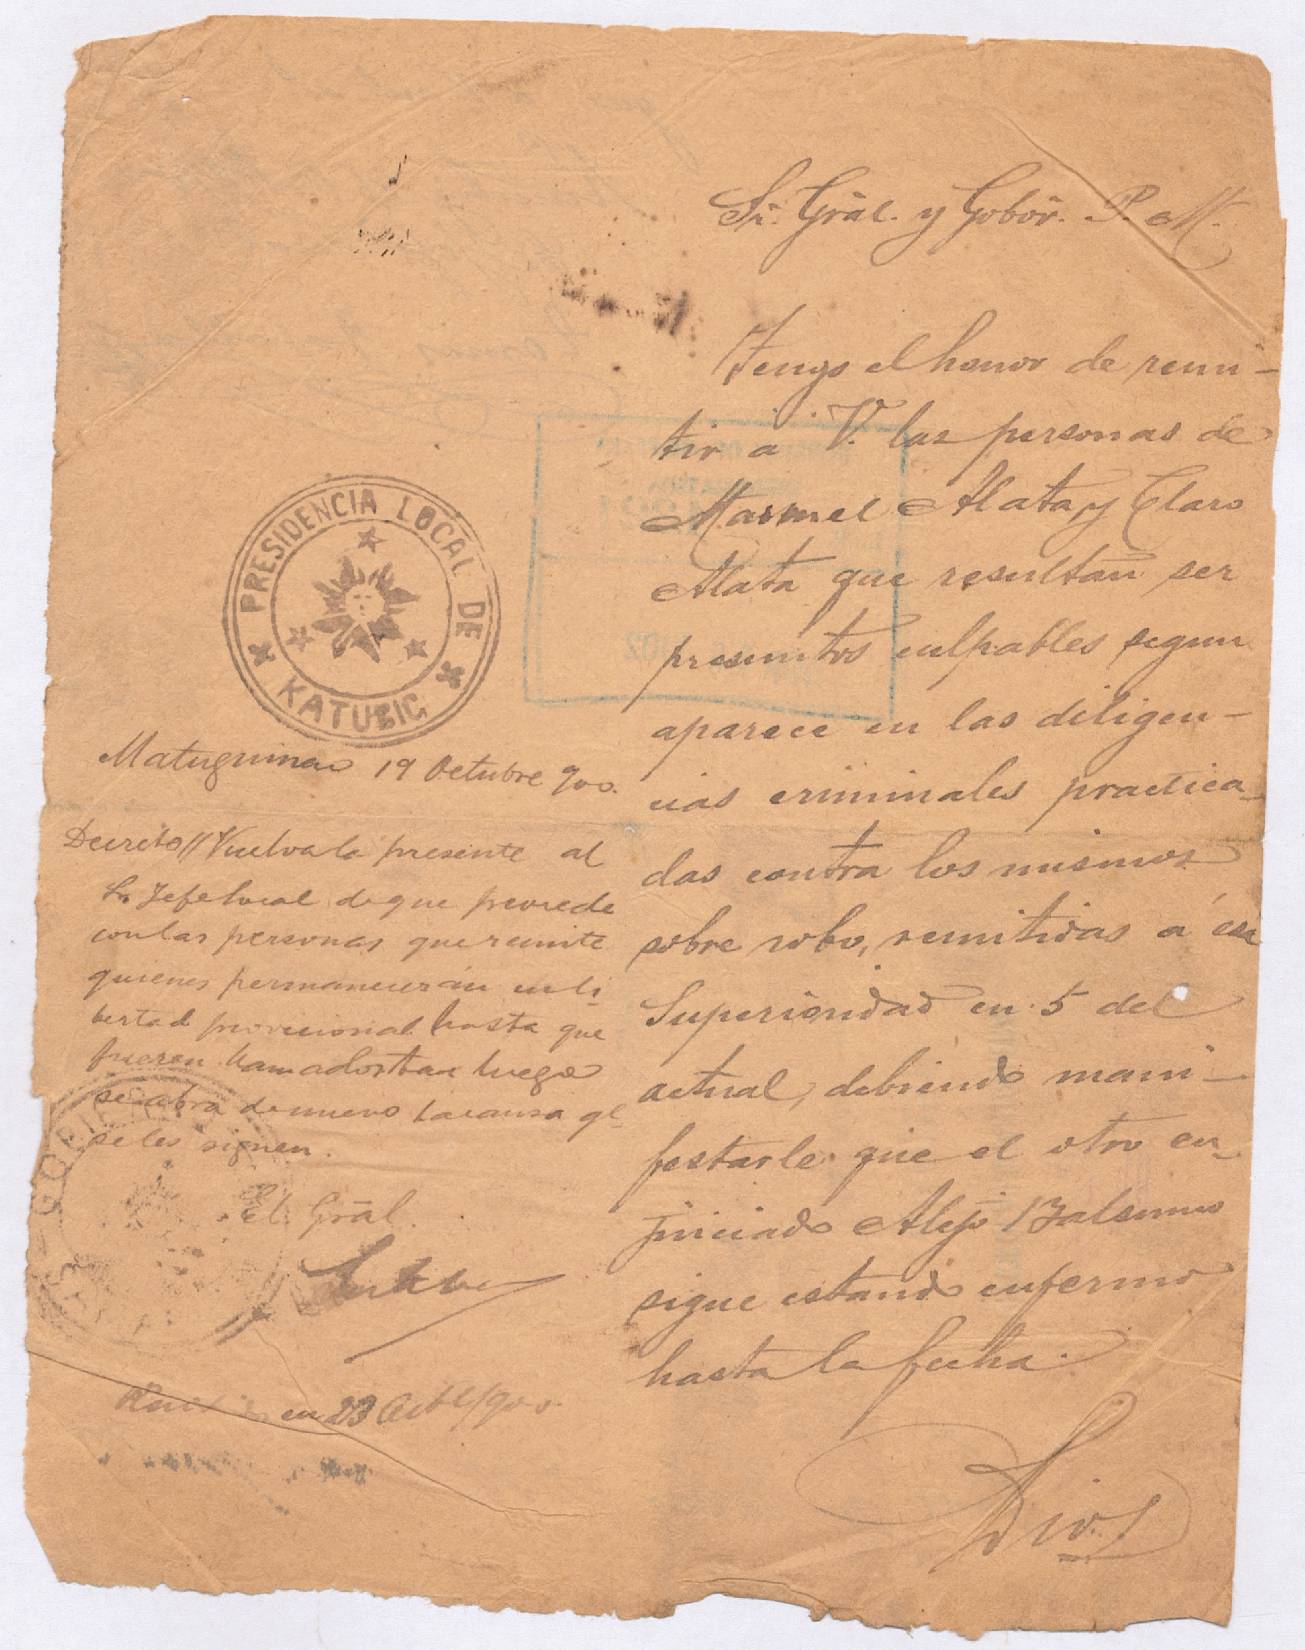 Sr. Grãl. y Gobõr. P. M.
Tengo el honor de remi-
tir a V. las personas de
Manuel Alata y Claro
Alata que resultan ser
presuntos culpables segun
aparece en las diligen-
cias criminales practica-
das contra los mismos
sobre robo, remitidas á esa
Superioridad en 5 del
actual, debiendo mani-
festarle que el otro en-
juiciado Alejo Balsimo
sigue estando enfermo
hasta la fecha.
Dios
PRESIDENCIA LOCAL DE
KATUBIG
Matuguinao 19 Octubre 900.
Decreto// Vuelva la presente al
Sr. Jefe local de que procede
con las personas que remite
quienes permanecerán en li-
bertad provicional hasta que
fueren llamados tan luego
se abra de nuevo la causa ql
se les siguen.
El Grãl.
en 23 Octbe/900